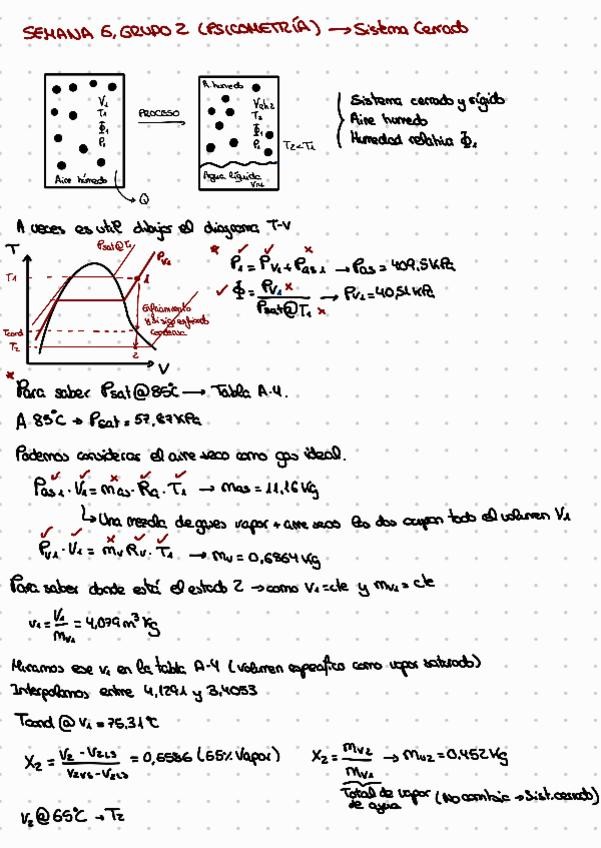 SEMANA 6, GRUPO 2 (PSICOMETRÍA) → Sistema Cerrado
V₁
T₁
Φ₁
P₁
Aire húmedo
Q
PROCESO
A. húmedo
T₂
Φ₂
P₂
Agua líquida
T₂<T₁
Sistema cerrado y rígido
Aire húmedo
Humedad relativa Φ₁
A veces es util dibujar el diagrama T-V
T
Psat@T₁
Pv₁
T₁
1
Enfriamiento
condensa
Tcond
T₂
2
V
* P₁ = Pv₁ + Pas₁ → Pas = 409,5 kPa
Φ = Pv₁ / Psat@T₁ → Pv₁ = 40,51 kPa
* Para saber Psat@85°C → Tabla A-4.
A 85°C → Psat = 57,87 kPa
Podemos considerar el aire seco como gas ideal.
Pas₁ · V₁ = mas · Ra · T₁ → mas = 11,16 kg
↳ Una mezcla de gases vapor + aire seco los dos ocupan todo el volumen V₁
Pv₁ · V₁ = mv Rv · T₁ → mv = 0,6864 kg
Para saber donde está el estado 2 → como V₁ = cte y mv₁ = cte
v₁ = V₁ / mv₁ = 4,079 m³/kg
Miramos ese v₁ en la tabla A-4 (volumen específico como vapor saturado)
Interpolamos entre 4,1291 y 3,4053
Tcond @ v₁ = 75,31 °C
X₂ = (V₂ - V₂L₃) / (V₂V₃ - V₂L₃) = 0,6586 (65% Vapor)
X₂ = mv₂ / mv₁ → mv₂ = 0,452 kg
Total de vapor (No cambia → Sist. cerrado)
de agua
v₂ @ 65°C → T₂